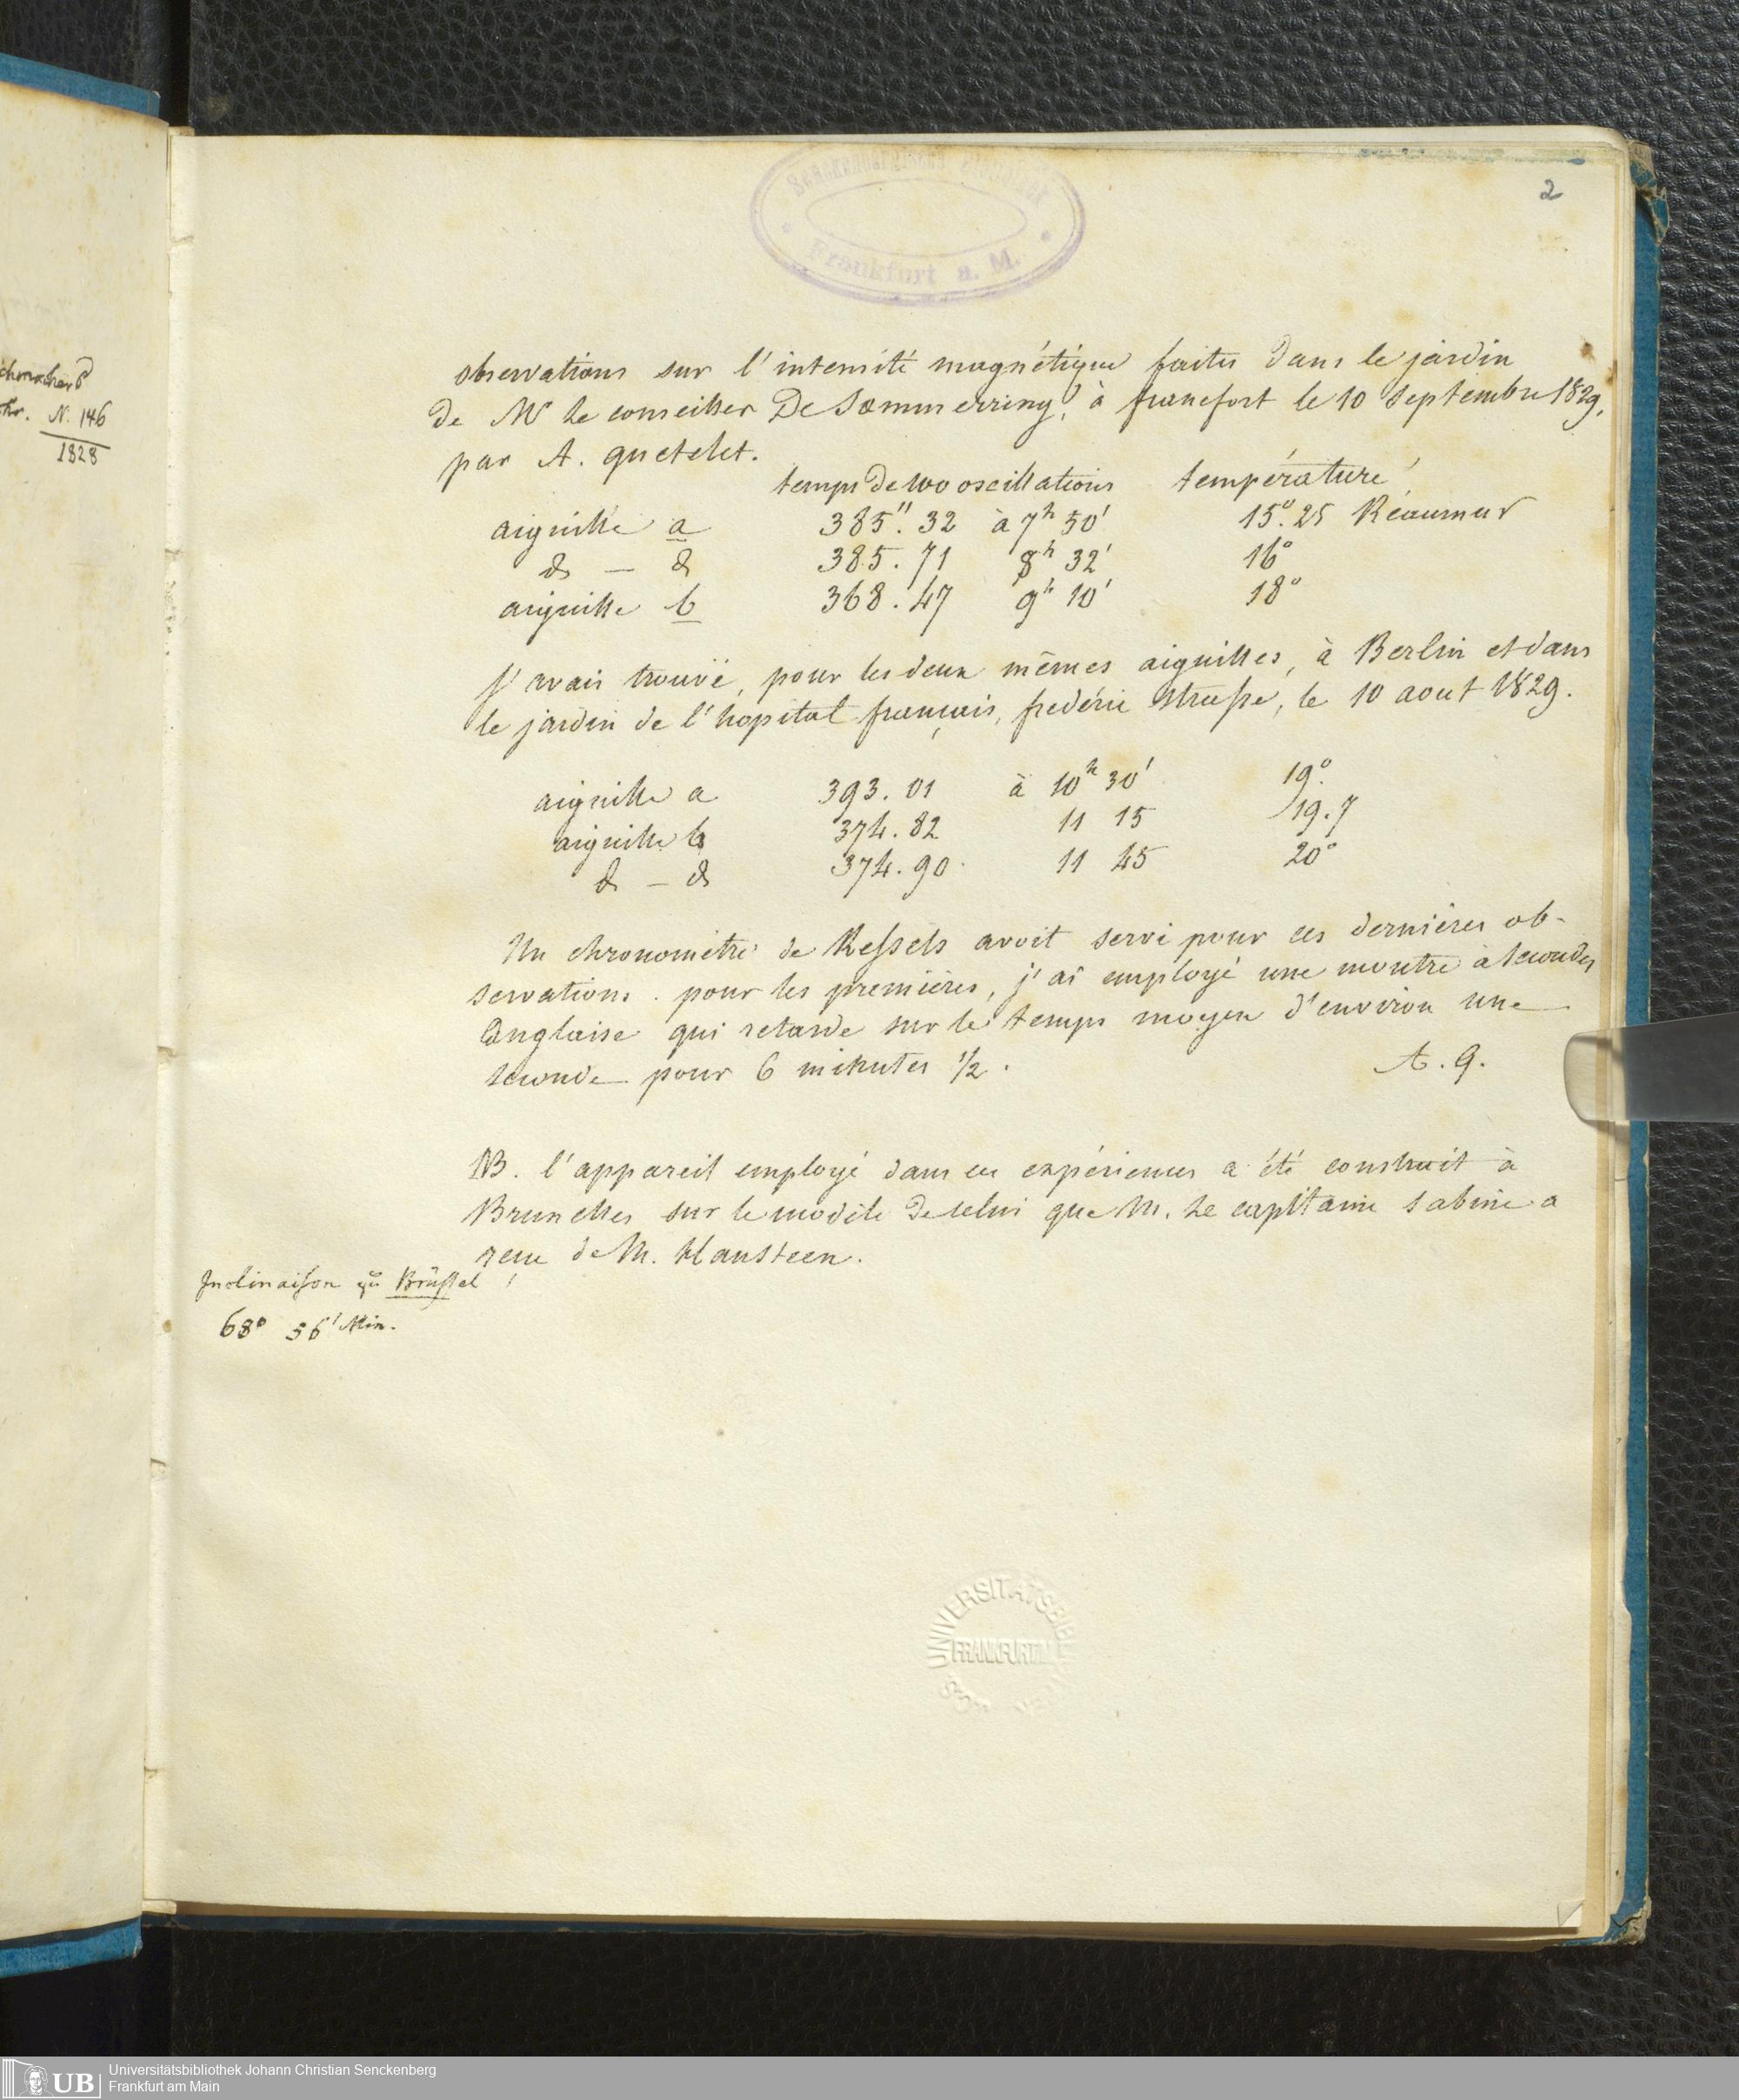 2
Senckenbergische Bibliothek
Frankfurt a. M.
N. 146
1828
observations sur l'intensité magnétique faites dans le jardin
de Mr le conseiller De Sœmmerring, à francfort le 10 Septembre 1829,
par A. quetelet.
temps de 100 oscillations température
aiguille a 385". 32 à 7h 50' 15°. 25 Réaumur
d — d 385. 71 8h 32' 16°
aiguille b 368. 47 9h 10' 18°
j'avais trouvé, pour les deux mêmes aiguilles, à Berlin et dans
le jardin de l'hopital français, frédéric strasse, le 10 aout 1829.
aiguille a 393. 01 à 10h 30' 19°.
aiguille b 374. 82 11 15 19.7
d — d 374. 90 11 45 20°
Un chronomètre de Kessels avoit servi pour ces dernières ob-
servations. pour les premières, j'ai employé une montre à secondes
Anglaise qui retarde sur le temps moyen d'environ une
seconde pour 6 minutes 1/2. A. Q.
NB. l'appareil employé dans ces expériences a été construit à
Bruxelles sur le modèle de celui que M. le capitaine Sabine a
reçu de M. Hansteen.
Inclinaison zu Brüssel
68° 56' Min.
UNIVERSITÄTSBIBL
FRANKFURT
UB Universitätsbibliothek Johann Christian Senckenberg
Frankfurt am Main